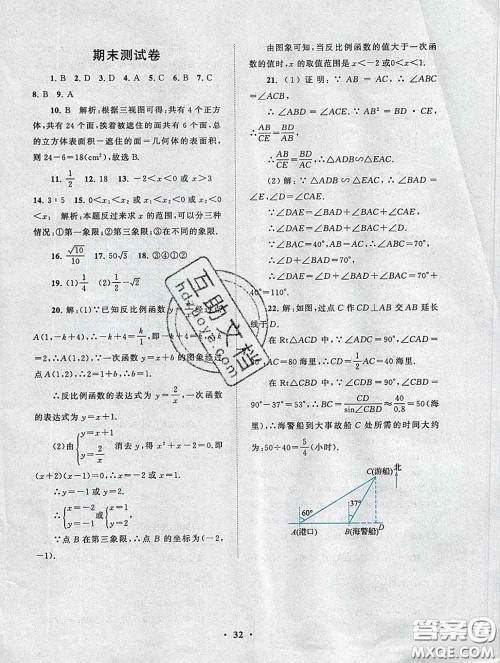 期末测试卷
1. B　2. D　3. D　4. A　5. C　6. B　7. C
8. B　9. A
10. B　解析:根据三视图可得:共有4个正方
体,共有24个面,挨着被遮住的面共有6个面,总
的立方体表面积一遮住的面一几何体的表面积,
则24-6=18(cm²),故选B.
11. 1/2　12. 18　13. -2<x<0或x>3
14. 3∶5　15. 0<x₁<x₂或x₁<x₂<0或x₂<0
<x₁　解析:本题反过来求x的范围,可以分三种
情况:①第一象限;②第三象限;③在不同的象限.
16. √10/10　17. 50√3　18. ③④①②
19. (1) 1/4　(2) 1/2-√3
20. 解:(1)∵已知反比例函数y=k/x经过点
A(1,-k+4),∴-k+4=k/1,即-k+4=k,∴k=
2,∴点A(1,2),∵一次函数y=x+b的图象经过
点A(1,2),∴2=1+b,∴b=1.
∴反比例函数的表达式为y=2/x,一次函数
的表达式为y=x+1.
(2)由{y=x+1, y=2/x　消去y,得x²+x-2=0.即
(x+2)(x-1)=0.∴x=-2或x=1.
∴y=-1或y=2.
∴{x=-2, y=-1或{x=1, y=2.
∵点B在第三象限,∴点B的坐标为(-2,
-1).
由图象可知,当反比例函数的值大于一次函
数的值时,x的取值范围是x<-2或0<x<1.
21. (1)证明:∵AB=AC,∴∠ABC
=∠ACB,
∴∠ABD=∠ACE.∵AB²=DB·CE.
∴AB/CE=BD/AB.
∴AB/CE=BD/AC,∴△ADB∽△EAC.
(2)解:∵△ADB∽△EAC,∴∠BAD=
∠E.
∵∠DAE=∠BAD+∠BAC+∠CAE,
∴∠DAE=∠BAC+∠E+∠CAE.
∵∠BAC=40°,AB=AC,∴∠ACB=70°.
∴∠E+∠CAE=70°,
∴∠DAE=∠BAC+∠E+∠CAE=70°
+40°=110°.
22. 解:如图,过点C作CD⊥AB交AB延长
线于D.
在Rt△ACD中,∵∠ADC=90°,∠CAD=
30°,AC=80海里,∴CD=1/2AC=40海里.
在Rt△CBD中,∵∠CDB=90°,∠CBD=
90°-37°=53°,∴BC=CD/sin∠CBD≈40/0.8
=50(海里),∴海警船到大事故船C处所需的时间大约
为:50÷40=5/4(小时).
C(游船)　北
60°
37°
A(港口)　B(海警船)　D
互助文档
• 32 •
答案圈
MXQE.COM